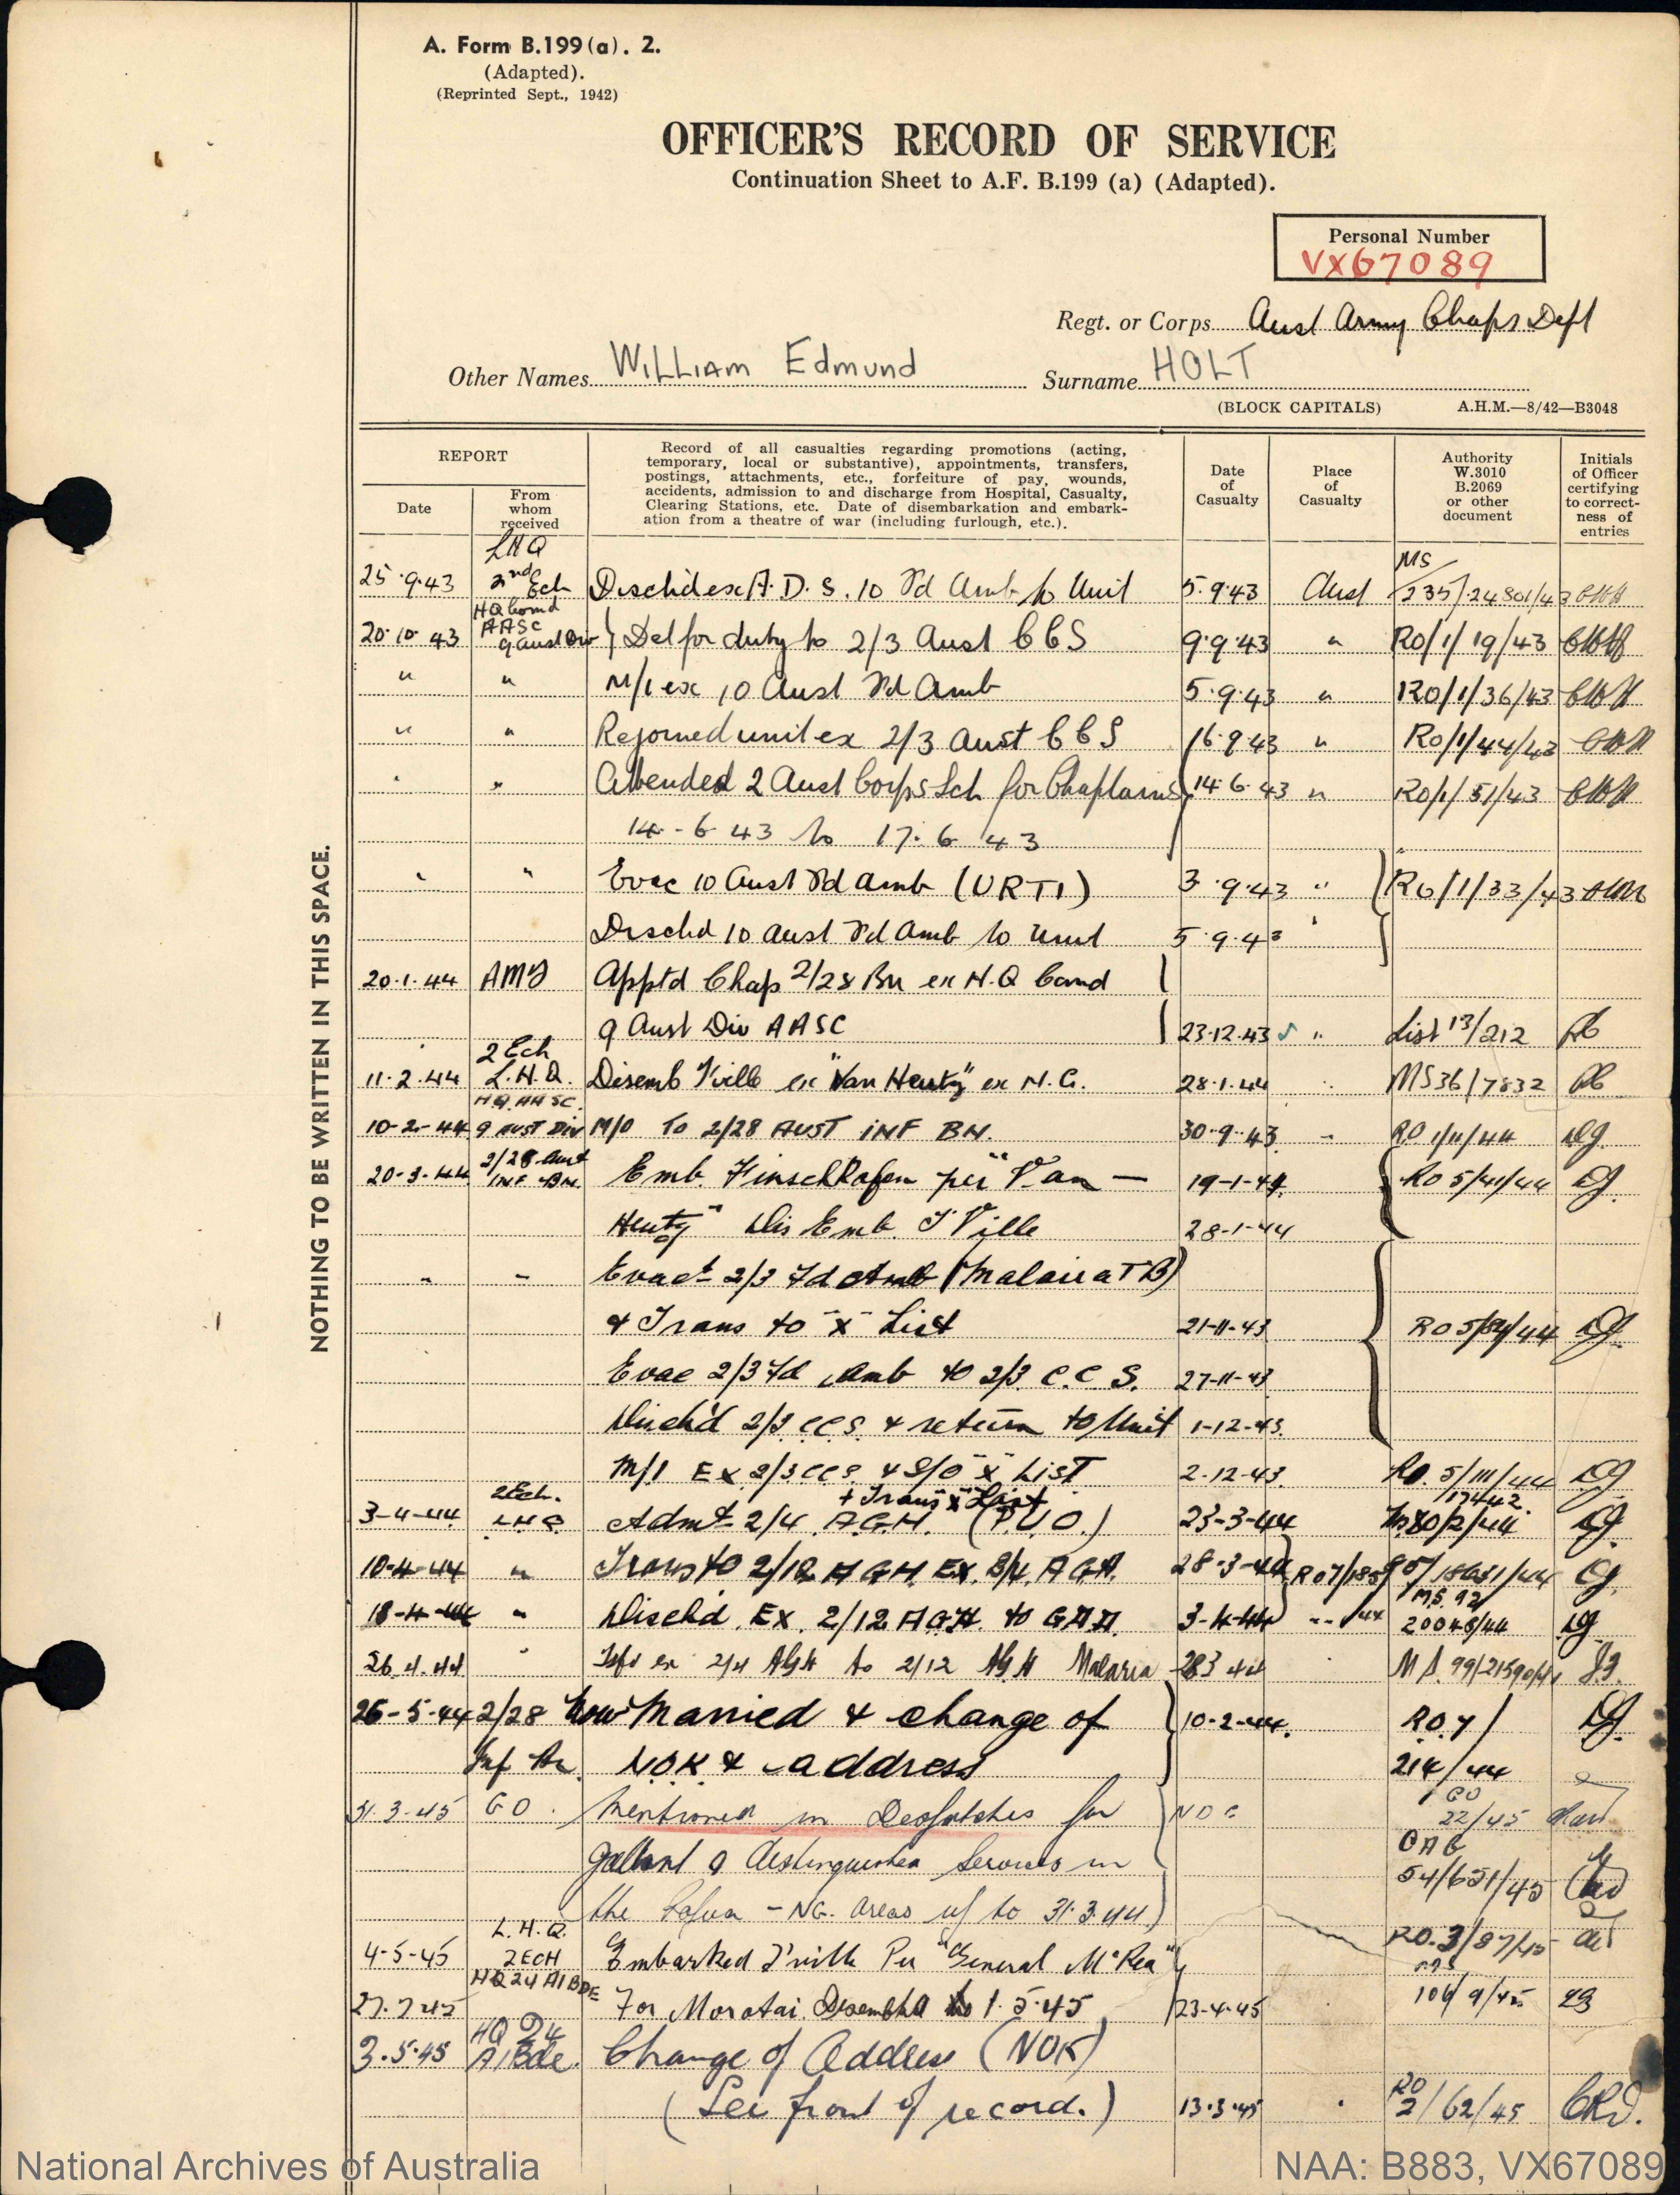 A. Form B.199(a). 2.
(Adapted).
(Reprinted Sept., 1942)
OFFICER'S RECORD OF SERVICE
Continuation Sheet to A.F. B.199 (a) (Adapted).
Personal Number
VX67089
Regt. or Corps Aust Army Chaps Dept
Other Names William Edmund Surname HOLT
(BLOCK CAPITALS) A.H.M.—8/42—B3048
REPORT
Date
From whom received
Record of all casualties regarding promotions (acting,
temporary, local or substantive), appointments, transfers,
postings, attachments, etc., forfeiture of pay, wounds,
accidents, admission to and discharge from Hospital, Casualty,
Clearing Stations, etc. Date of disembarkation and embark-
ation from a theatre of war (including furlough, etc.).
Date of Casualty
Place of Casualty
Authority W.3010 B.2069 or other document
Initials of Officer certifying to correct-ness of entries
NOTHING TO BE WRITTEN IN THIS SPACE.
LHQ MS
25.9.43 2nd Ech Dischd ex A.D.S. 10 Fd Amb to Unit 5.9.43 Aust 235/24801/43
HQ Comd
AASC
20.10.43 9 Aust Div Det for duty to 2/3 Aust CCS 9.9.43 " R0/1/19/43 CWH
" " M/I ex 10 Aust Fd Amb 5.9.43 " R0/1/36/43 CWH
" " Rejoined unit ex 2/3 Aust CCS 16.9.43 " R0/1/44/43 CWH
" " Attended 2 Aust Corps Sch for Chaplains 14.6.43 " R0/1/51/43 CWH
14-6-43 to 17.6.43
" " Evac 10 Aust Fd Amb (URTI) 3.9.43 " R0/1/33/43
Dischd 10 Aust Fd Amb to Unit 5.9.43 "
20.1.44 AMD Apptd Chap 2/28 Bn ex H.Q Comd
9 Aust Div AASC 23.12.43 " List 13/212
2 Ech
11.2.44 L.H.Q. Disemb T'ville ex "Van Heutz" ex N.G. 28.1.44 " MS36/7832
H.Q. AASC.
10-2-44 9 AUST DIV M/O TO 2/28 AUST INF BN. 30.9.43 " RO 1/11/44 DG.
2/28 Aust
20-3-44 INF BN. Emb. Finschhafen per "Van — 19-1-44 RO 5/41/44 DG.
Heutz" Dis Emb. T'Ville 28-1-44
" " Evact 2/3 Fd Amb (Malaria TB)
& Trans to "X" List 21-11-43 DG.
Evac 2/3 Fd Amb to 2/3 C.C.S. 27-11-43
Disch'd 2/3 CCS & return to Unit 1-12-43
M/I EX 2/3 CCS & S/O "X" LIST 2-12-43 RO. 5/111/44 DG
2 Ech. + Trans "X" List 17442
3-4-44 LHQ Admt 2/4 A.G.H. (P.U.O.) 23-3-44 DG.
10-4-44 " Trans to 2/12 A.G.H. EX. 2/4 A.G.H. 28-3-44
18-4-44 " Disch'd EX. 2/12 A.G.H. to G.D.D. 3-4-44 MS.92/20048/44 DG
26.4.44 " Tsfd ex 2/4 AGH to 2/12 AGH Malaria 28 3 44 MS. 99/21590/44
26-5-44 2/28 Now Married & change of 10-2-44. R.O.7/ DG.
Inf Bn N.O.K & address 214/44
31.3.45 GO. Mentioned in Despatches for GO 22/45
gallant & distinguished Services in CAG 54/651/45
the Papua - NG. areas up to 31.3.44)
L.H.Q.
4-5-45 2 ECH Embarked T'ville Per "General McRea" RO.3/87/45
HQ 24 AI BDE MS
27.7.45 For Morotai. Disembkd 1.5.45 23-4-45 106/9/45
HQ 24
3.5.45 AI Bde. Change of Address (NOK)
(See front of record.) 13.3.45 " RO 2/62/45 CRD.
National Archives of Australia NAA: B883, VX67089